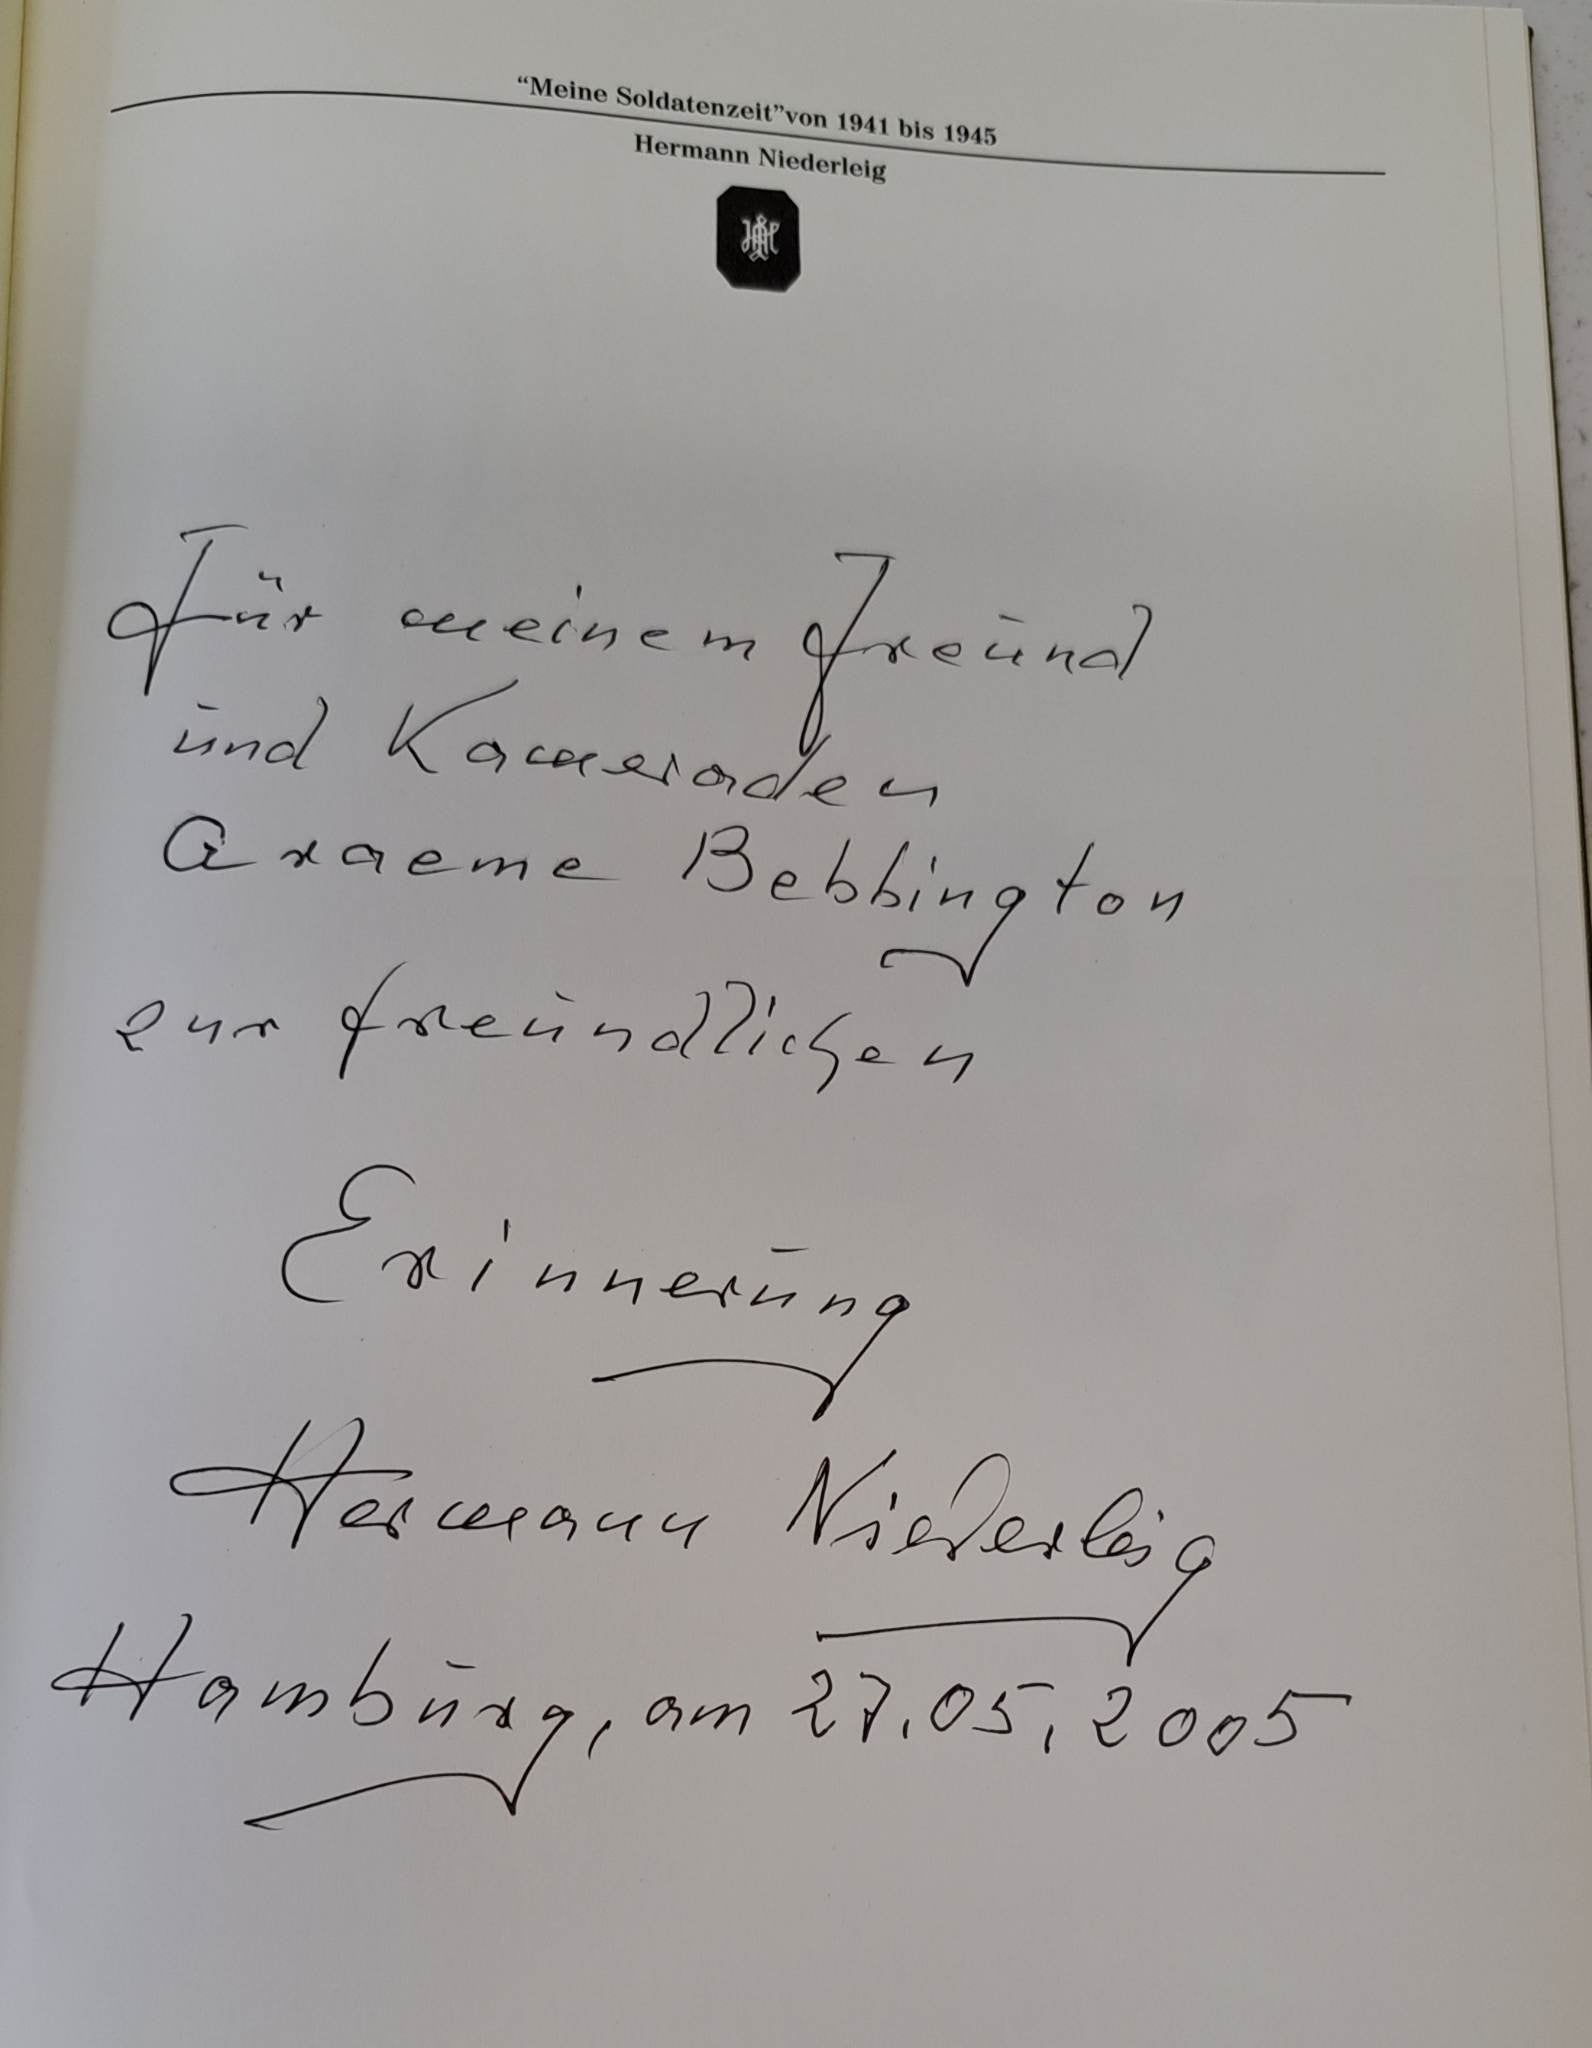 “Meine Soldatenzeit”von 1941 bis 1945
Hermann Niederleig
Für meinem Freund
und Kameraden
Graeme Bebbington
zur freundlichen
Erinnerung
Hermann Niederleig
Hamburg, am 27.05.2005